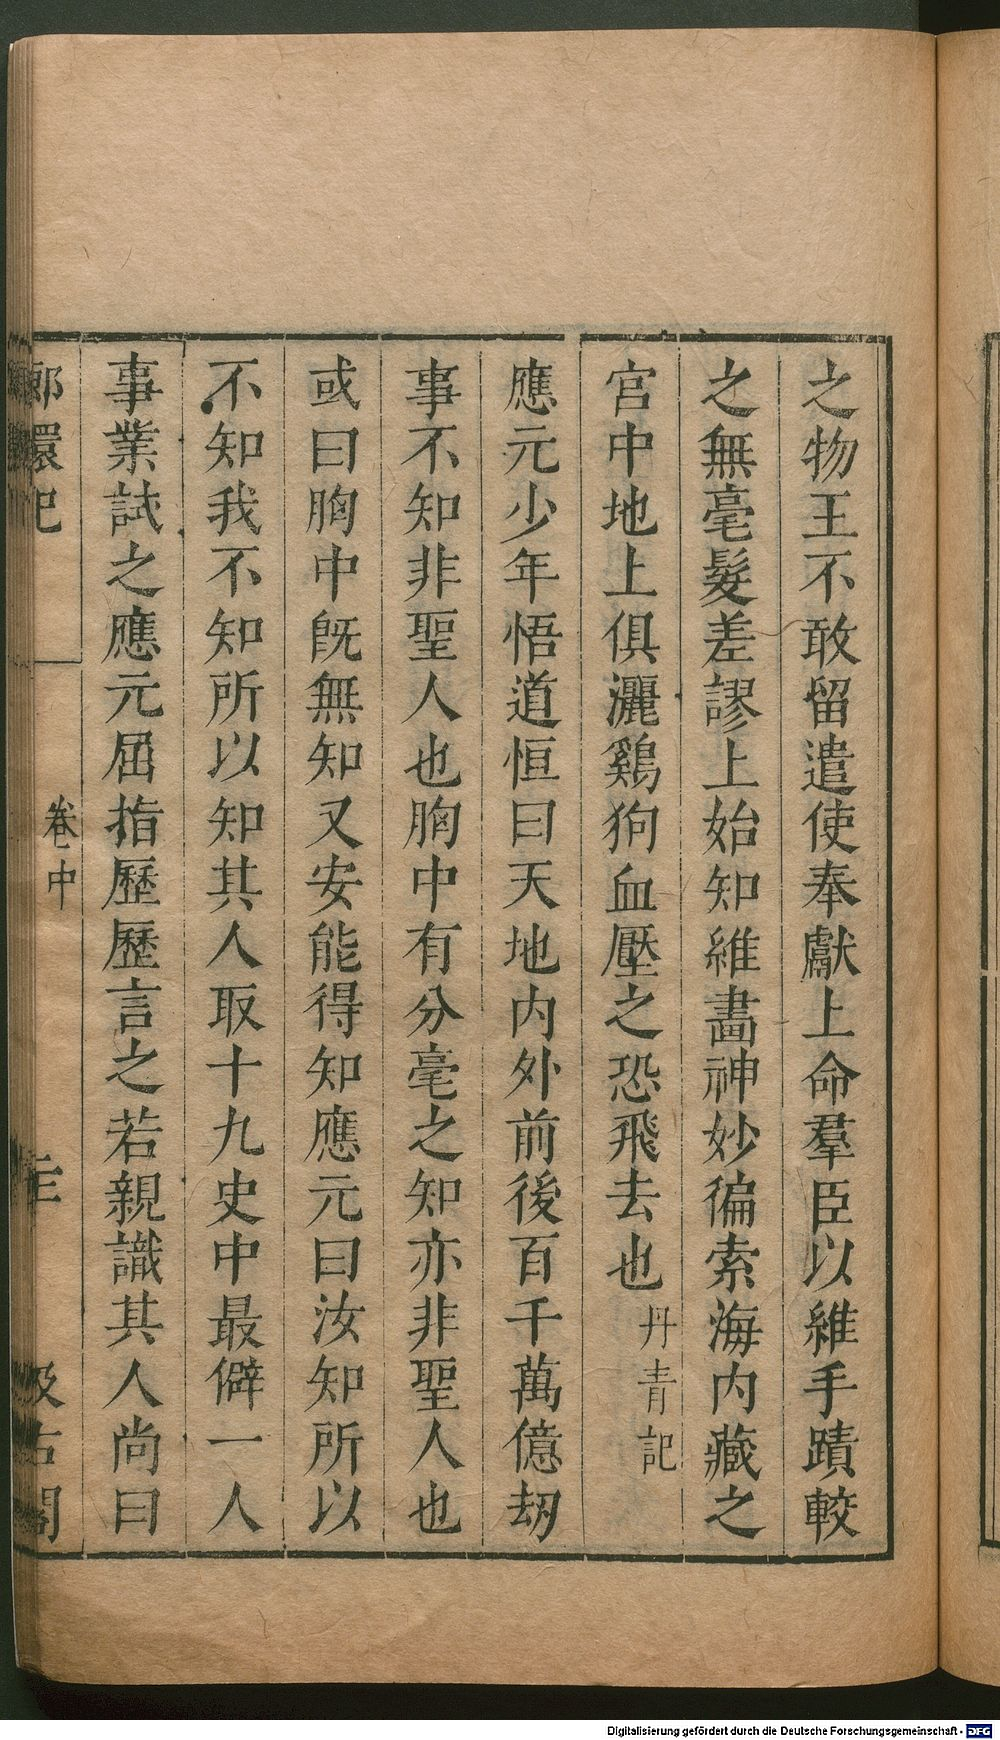 之物王不敢留遣使奉獻上命羣臣以維手蹟較
之無毫髮差謬上始知維畫神妙徧索海内藏之
宫中地上俱灑鷄狗血壓之恐飛去也丹青記
應元少年悟道恒曰天地内外前後百千萬億刼
事不知非聖人也胸中有分毫之知亦非聖人也
或曰胸中旣無知又安能得知應元曰汝知所以
不知我不知所以知其人取十九史中最僻一人
事業試之應元屈指歷歷言之若親識其人尚曰
郎環記
卷中
汲古閣
Digitalisierung gefördert durch die Deutsche Forschungsgemeinschaft - DFG